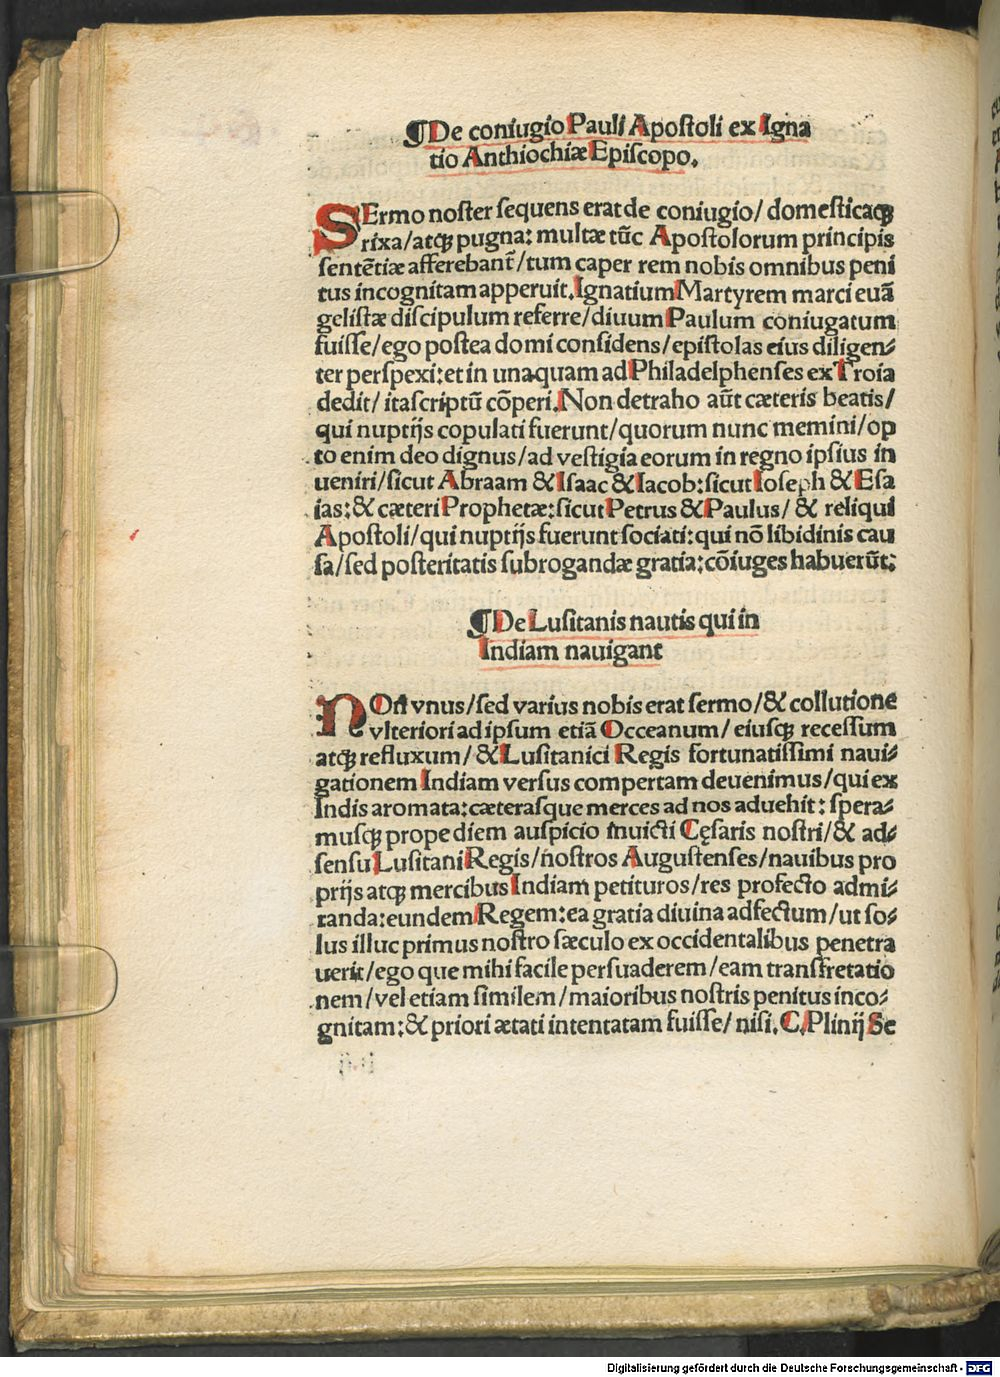 ¶De coniugio Pauli Apostoli ex Igna
tio Anthiochiæ Episcopo.
SErmo noster sequens erat de coniugio/ domesticaqꝫ
rixa/atqꝫ pugna: multæ tūc Apostolorum principis
sentētiæ afferebant᷑/tum caper rem nobis omnibus peni
tus incognitam apperuit.Ignatium Martyrem marci euā
gelistæ discipulum referre/diuum Paulum coniugatum
fuisse/ego postea domi considens/epistolas eius diligen⸗
ter perspexi:et in una quam ad Philadelphenses ex Troia
dedit/ ita scriptū cōperi.Non detraho aūt cæteris beatis/
qui nuptijs copulati fuerunt/quorum nunc memini/op
to enim deo dignus/ad vestigia eorum in regno ipsius in
ueniri/sicut Abraam & Isaac & Iacob:sicut Ioseph & Esa
ias:& cæteri Prophetæ:sicut Petrus & Paulus/ & reliqui
Apostoli/qui nuptijs fuerunt sociati:qui nō libidinis cau
sa/sed posteritatis subrogandæ gratia:cōiuges habuerūt:
¶De Lusitanis nautis qui in
Indiam nauigant
NOn vnus/sed varius nobis erat sermo/& collutione
vlteriori ad ipsum etiā Occeanum/ eiusqꝫ recessum
atqꝫ refluxum/ & Lusitanici Regis fortunatissimi naui⸗
gationem Indiam versus compertam deuenimus/qui ex
Indis aromata:cæterasque merces ad nos aduehit: spera⸗
musqꝫ prope diem auspicio inuicti Cęsaris nostri/& ad⸗
sensu Lusitani Regis/nostros Augustenses/nauibus pro
prijs atqꝫ mercibus Indiam petituros/res profecto admi⸗
randa:eundem Regem:ea gratia diuina adfectum/ut so⸗
lus illuc primus nostro sæculo ex occidentalibus penetra
uerit/ego que mihi facile persuaderem/eam transfretatio
nem/vel etiam similem/maioribus nostris penitus inco⸗
gnitam:& priori ætati intentatam fuisse/ nisi.C.Plinij Se
Digitalisierung gefördert durch die Deutsche Forschungsgemeinschaft - DFG